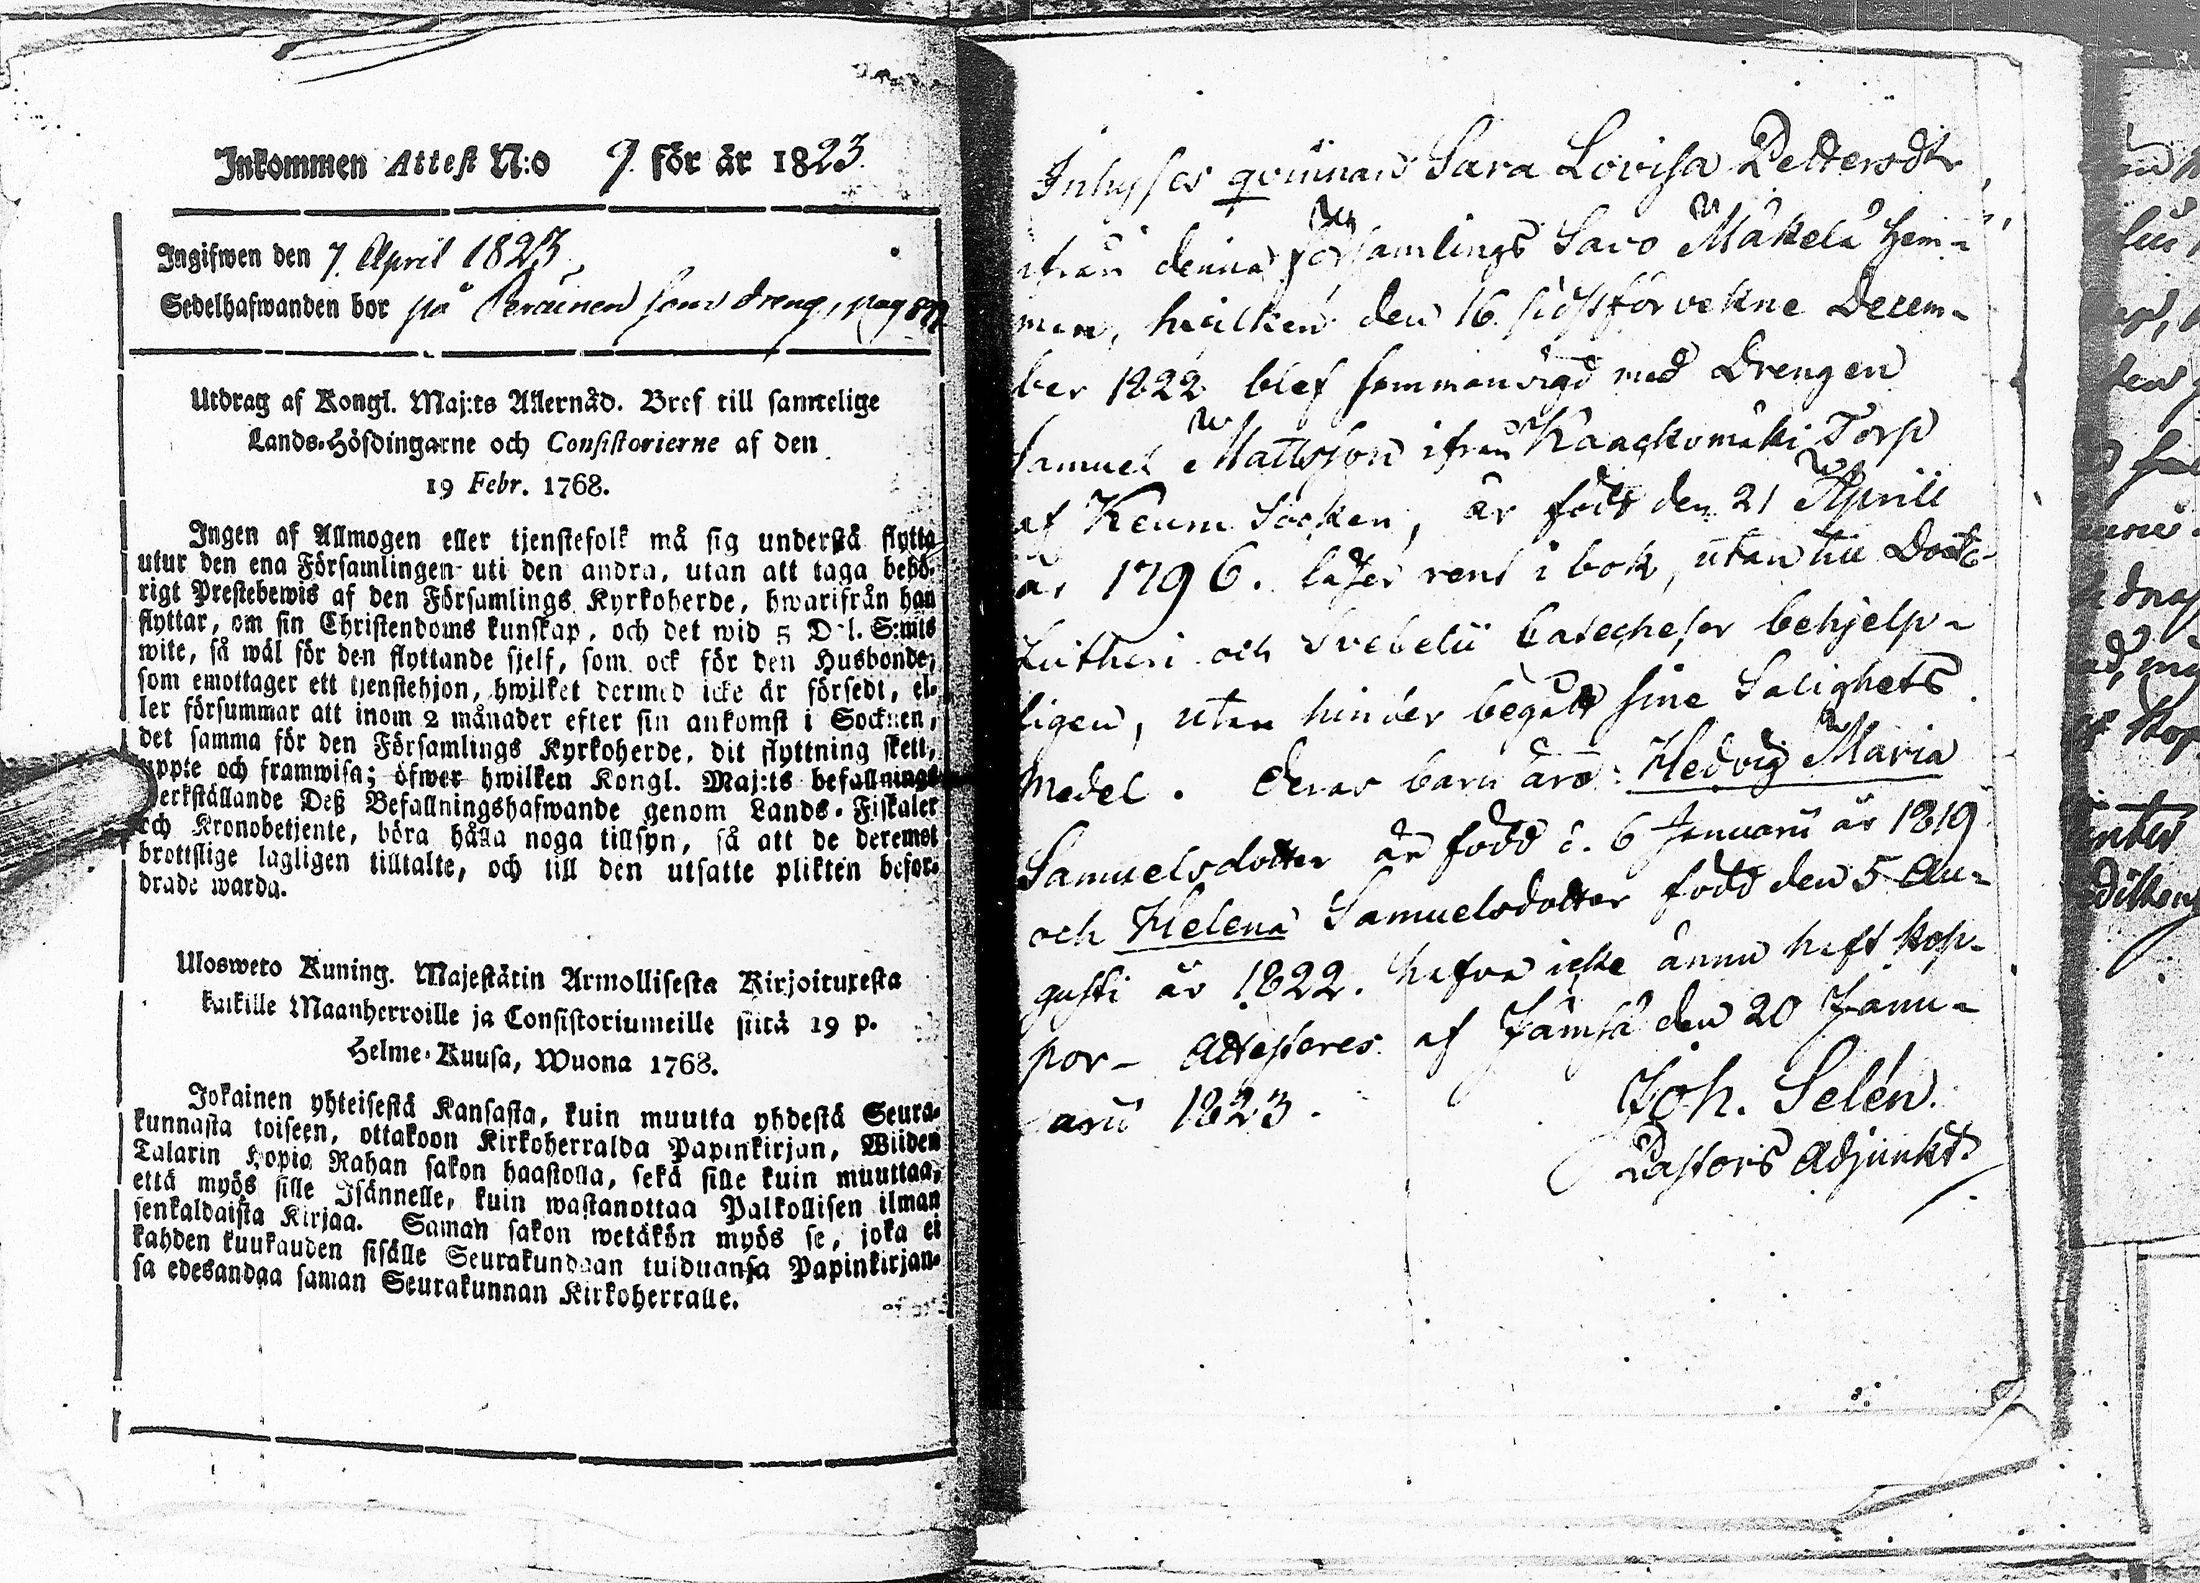 Inkommen Attest N:o 9. för år 1823.
Ingifwen den 7. April 1823.
Sedelhafwanden bor på Peräinen som dreng, pag
Utdrag af Kongl. Maj:ts Allernåd. Bref till samtelige
Lands-Höfdingarne och Consistorierne af den
19 Febr. 1768.
Ingen af Allmogen eller tjenstefolk må sig understå flytta
utur den ena Församlingen uti den andra, utan att taga behö-
rigt Prestebewis af den Församlings Kyrkoherde, hwarifrån han
flyttar, om sin Christendoms kunskap, och det wid 5 Dal. S:mts
wite, så wäl för den flyttande sjelf, som ock för den Husbonde,
som emottager ett tjenstehjon, hwilket dermed icke är försedt, el-
ler försummar att inom 2 månader efter sin ankomst i Socknen,
det samma för den Församlings Kyrkoherde, dit flyttning skett,
uppte och framwisa; öfwer hwilken Kongl. Maj:ts befallnings
werkställande Deß Befallningshafwande genom Lands-Fiskaler
och Kronobetjente, böra hålla noga tillsyn, så att de deremot
brottslige lagligen tilltalte, och till den utsatte plikten befor-
drade warda.
Ulosweto Kuning. Majestätin Armollisesta Kirjoituxesta
kaikille Maanherroille ja Consistoriumeille siitä 19 p.
Helme-Kuusa, Wuona 1768.
Jokainen yhteisestä Kansasta, kuin muutta yhdestä Seura-
kunnasta toiseen, ottakoon Kirkoherralda Papinkirjan, Wiiden
Talarin Hopia Rahan sakon haastolla, sekä sille kuin muuttaa,
että myös sille Isännelle, kuin wastanottaa Palkollisen ilman
senkaldaista Kirjaa. Saman sakon wetäkön myös se, joka ei
kahden kuukauden sisälle Seurakundaan tulduansa Papinkirjan-
sa edesandaa saman Seurakunnan Kirkoherralle.
Inhyses qvinnan Sara Lovisa Pettersdtr
ifrån denna Församlings Savo Mäkelä hem-
man, hvilken den 16 sidstförvekne Decem-
ber 1822 blef sammanvigd med Drengen
Samuel Mattsson ifrån Kaackomäki Torp
af Keuru Socken, är född den 21 Aprill
år 1796. läser rent i bok, utan till Doct-
Lutheri och Svebelii Catecheser behjelp-
ligen, utan hinder begått sine Salighets
Medel. Deras barn äro: Hedvig Maria
Samuelsdotter är född d. 6 Januarii år 1819
och Helena Samuelsdotter född den 5 Au-
gusti år 1822. hafva icke ännu haft kop-
por - Attesteres af Jämsä den 20 Janu-
arii 1823.
Joh. Selén.
Pastors Adjunkt.